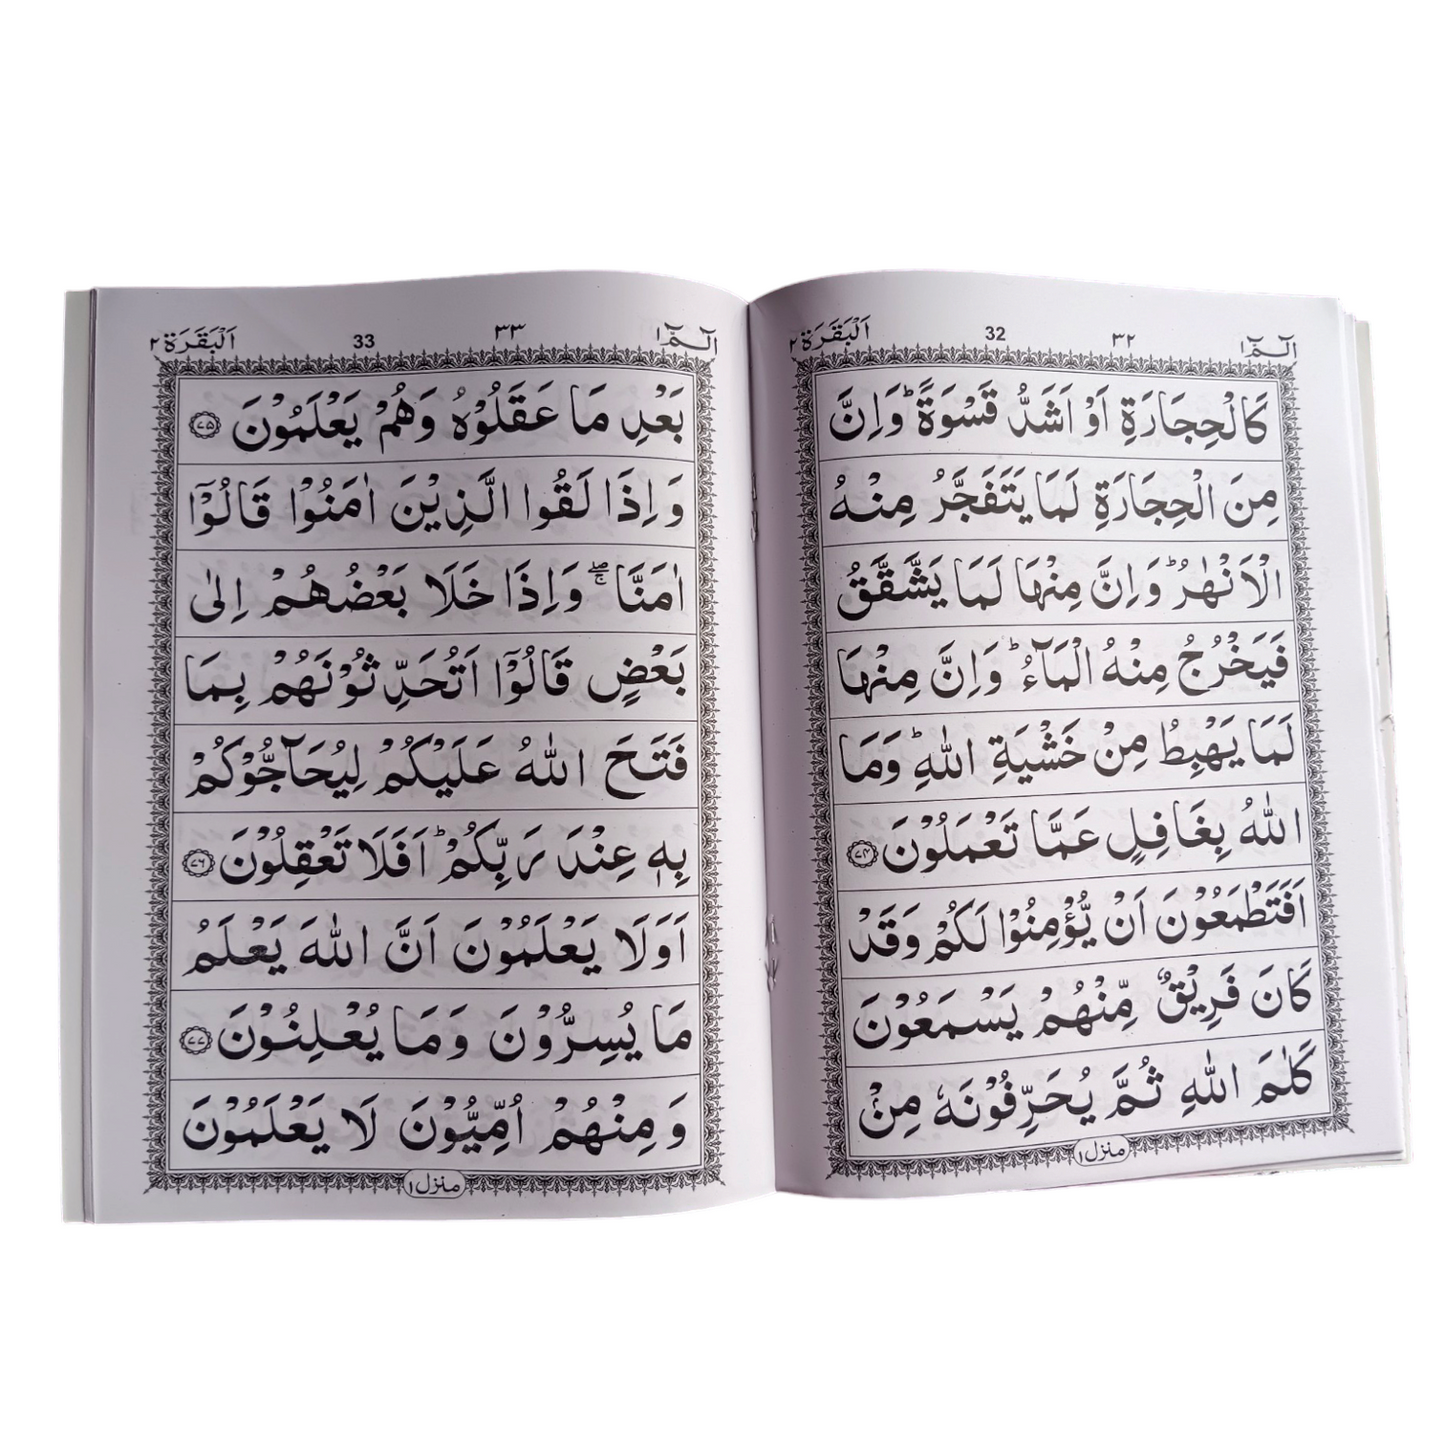 الٓمّٓ ۱
۳۲
32
اَلْبَقَرَة ۲
كَالْحِجَارَةِ اَوْ اَشَدُّ قَسْوَةً ؕ وَاِنَّ
مِنَ الْحِجَارَةِ لَمَا يَتَفَجَّرُ مِنْهُ
الْاَنْهٰرُ ؕ وَاِنَّ مِنْهَا لَمَا يَشَّقَّقُ
فَيَخْرُجُ مِنْهُ الْمَآءُ ؕ وَاِنَّ مِنْهَا
لَمَا يَهْبِطُ مِنْ خَشْيَةِ اللّٰهِ ؕ وَمَا
اللّٰهُ بِغَافِلٍ عَمَّا تَعْمَلُوْنَ ﴿۷۴﴾
اَفَتَطْمَعُوْنَ اَنْ يُّؤْمِنُوْا لَكُمْ وَقَدْ
كَانَ فَرِيْقٌ مِّنْهُمْ يَسْمَعُوْنَ
كَلٰمَ اللّٰهِ ثُمَّ يُحَرِّفُوْنَهٗ مِنْۢ
منزل ۱
الٓمّٓ ۱
۳۳
33
اَلْبَقَرَة ۲
بَعْدِ مَا عَقَلُوْهُ وَهُمْ يَعْلَمُوْنَ ﴿۷۵﴾
وَاِذَا لَقُوا الَّذِيْنَ اٰمَنُوْا قَالُوْٓا
اٰمَنَّا ۚۖ وَاِذَا خَلَا بَعْضُهُمْ اِلٰى
بَعْضٍ قَالُوْٓا اَتُحَدِّثُوْنَهُمْ بِمَا
فَتَحَ اللّٰهُ عَلَيْكُمْ لِيُحَآجُّوْكُمْ
بِهٖ عِنْدَ رَبِّكُمْ ؕ اَفَلَا تَعْقِلُوْنَ ﴿۷۶﴾
اَوَلَا يَعْلَمُوْنَ اَنَّ اللّٰهَ يَعْلَمُ
مَا يُسِرُّوْنَ وَمَا يُعْلِنُوْنَ ﴿۷۷﴾
وَمِنْهُمْ اُمِّيُّوْنَ لَا يَعْلَمُوْنَ
منزل ۱